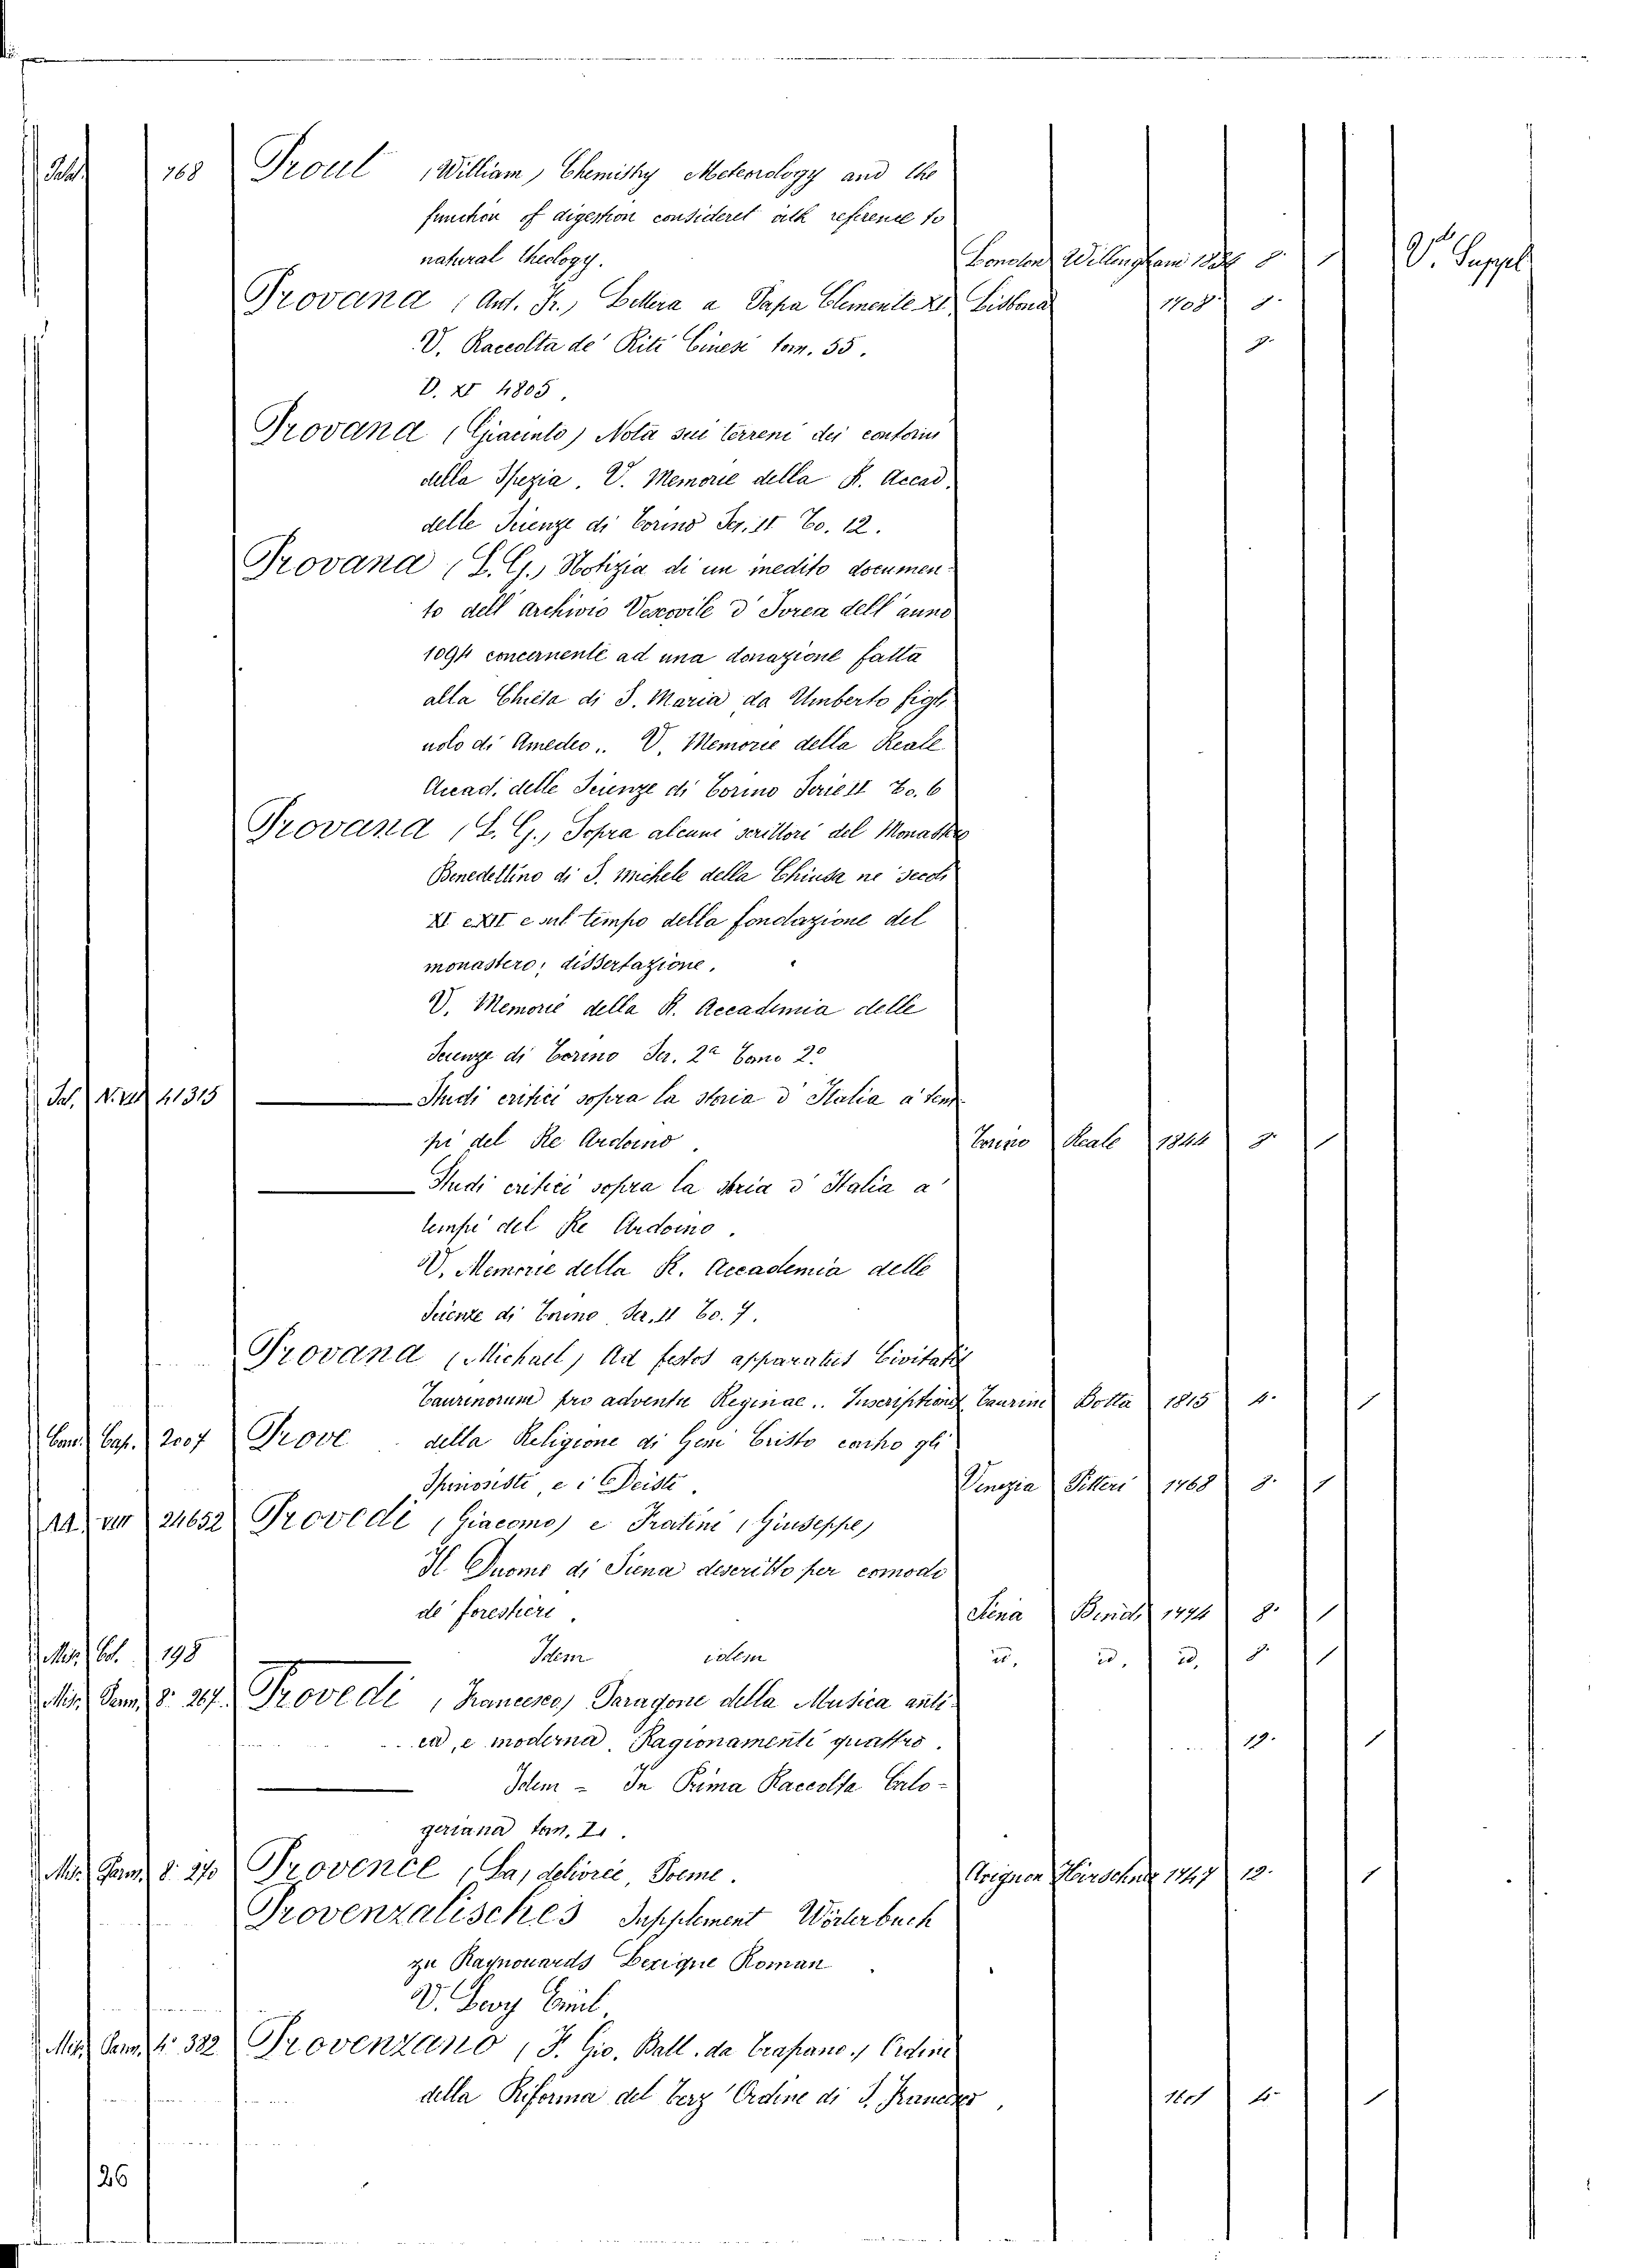 768 Prout (William) Chemistry Meteorology and the
function of digestion consideret with reference to
natural theology. London Willingham 1834 8. 1 Vt. Suppel
Provana (Ant. Fr.) Lettera a Papa Clemente XI Lisbona 1708 8.
V. Raccolta de' Riti Cinesi tom. 55. 8.
D. XV 4805.
Provana (Giacinto) Nota sui terreni dei contorni
della Spezia. V. Memorie della R. Accad.
delle Scienze di Torino Ser. II To. 12.
Provana (L. G.) Notizia di un inedito documen-
to dell' archivio Vescovile d' Ivrea dell' anno
1094 concernente ad una donazione fatta
alla Chiesa di S. Maria da Umberto figli
uolo di Amedeo.. V. Memorie della Reale
Accad. delle Scienze di Torino Serie II To. 6
Provana (L. G.) Sopra alcuni scrittori del Monastero
Benedettino di S. Michele della Chiusa ne' secoli
XI e XII e sul tempo della fondazione del
monastero; dissertazione.
V. Memorie della R. Accademia delle
Scienze di Torino Ser. 2a Tomo 2o
Sal. N. VIII 41315 Studi critici sopra la storia d' Italia a' tem
pi del Re Ardoino. Torino Reale 1844 8. 1
Studi critici sopra la storia d' Italia a'
tempi del Re Ardoino.
V. Memorie della R. Accademia delle
Scienze di Torino Ser. II To. 7.
Provana (Michael) Ad festos apparatus Civitatis
Taurinorum pro adventu Reginae.. Inscriptiones Taurini Botta 1815 4. 1
Can. Cap. 2007 Prove della Religione di Gesù Cristo contro gli
Spinosisti, e i Deisti. Venezia Pitteri 1768 8. 1
AA. VIII 24652 Provedi (Giacomo) e Fratini (Giuseppe)
Il Duomo di Siena descritto per comodo
de' forestieri. Siena 1774 8. 1
Mis. Col. 198 Idem idem id. id. id. 8. 1
Mis. Parm. 8o 267. Provedi (Francesco) Paragone della Musica anti-
ca, e moderna. Ragionamenti quattro. 12. 1
Idem - In Prima Raccolta Calo-
geriana tom.
Mis. Parm. 8o 270 Provence (La) délivrée, Poeme. Avignon 1747 12. 1
Provenzalisches Supplement Wörterbuch
zu Raynouards Lexique Roman.
V. Levy Emil.
Mis. Parm. 4o 382 Provenzano (F. Gio. Batt. da Trapano.) Ordini
della Riforma del Terz' Ordine di S. Francesco. 4. 1
26